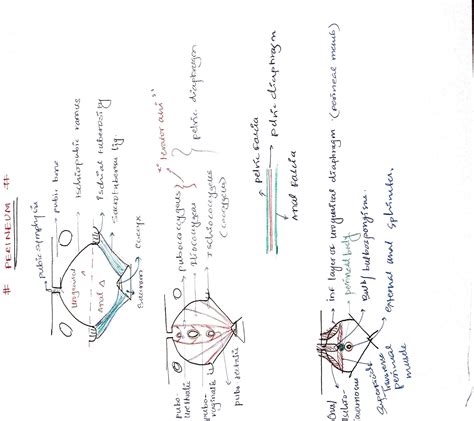 # PERINEUM #
pubic symphysis
pubic bone
Ischiopubic ramus
Ischial tuberosity
Sacrotuberous lig.
Coccyx
Sacrum
Urogenital Δ
Anal Δ
pubococcygeus
Iliococcygeus
"levator ani"
Ischiococcygeus
(coccygeus)
pelvic diaphragm
pubo-
urethralis
pubo-
vaginalis
pubo rectalis
pelvic fascia
pelvic diaphragm
Anal fascia
inf layer of urogenital diaphragm (perineal memb)
perineal body
Bulb/bulbospongiosus.
external anal sphincter
Ischio-
cavernosus
Superficial
Transverse
perineal
muscle